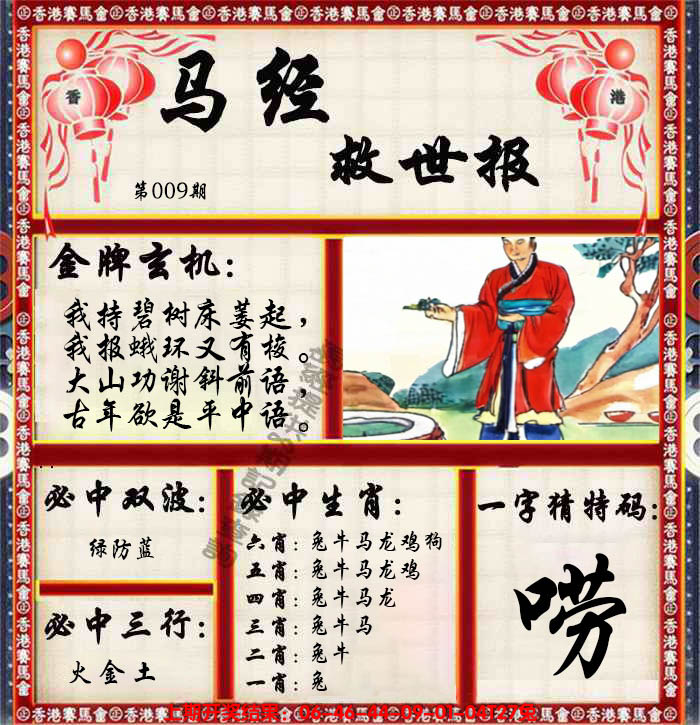 香港賽馬會
香 港
马经
救世报
第009期
金牌玄机：
我持碧树床萎起，
我报蛾环又有梭。
大山功谢斜前语，
古年欲是平中语。
必中双波：
绿防蓝
必中三行：
火金土
必中生肖：
六肖：兔牛马龙鸡狗
五肖：兔牛马龙鸡
四肖：兔牛马龙
三肖：兔牛马
二肖：兔牛
一肖：兔
一字猜特码：
唠
上期开奖结果：06-46-44-09-01-04T27兔